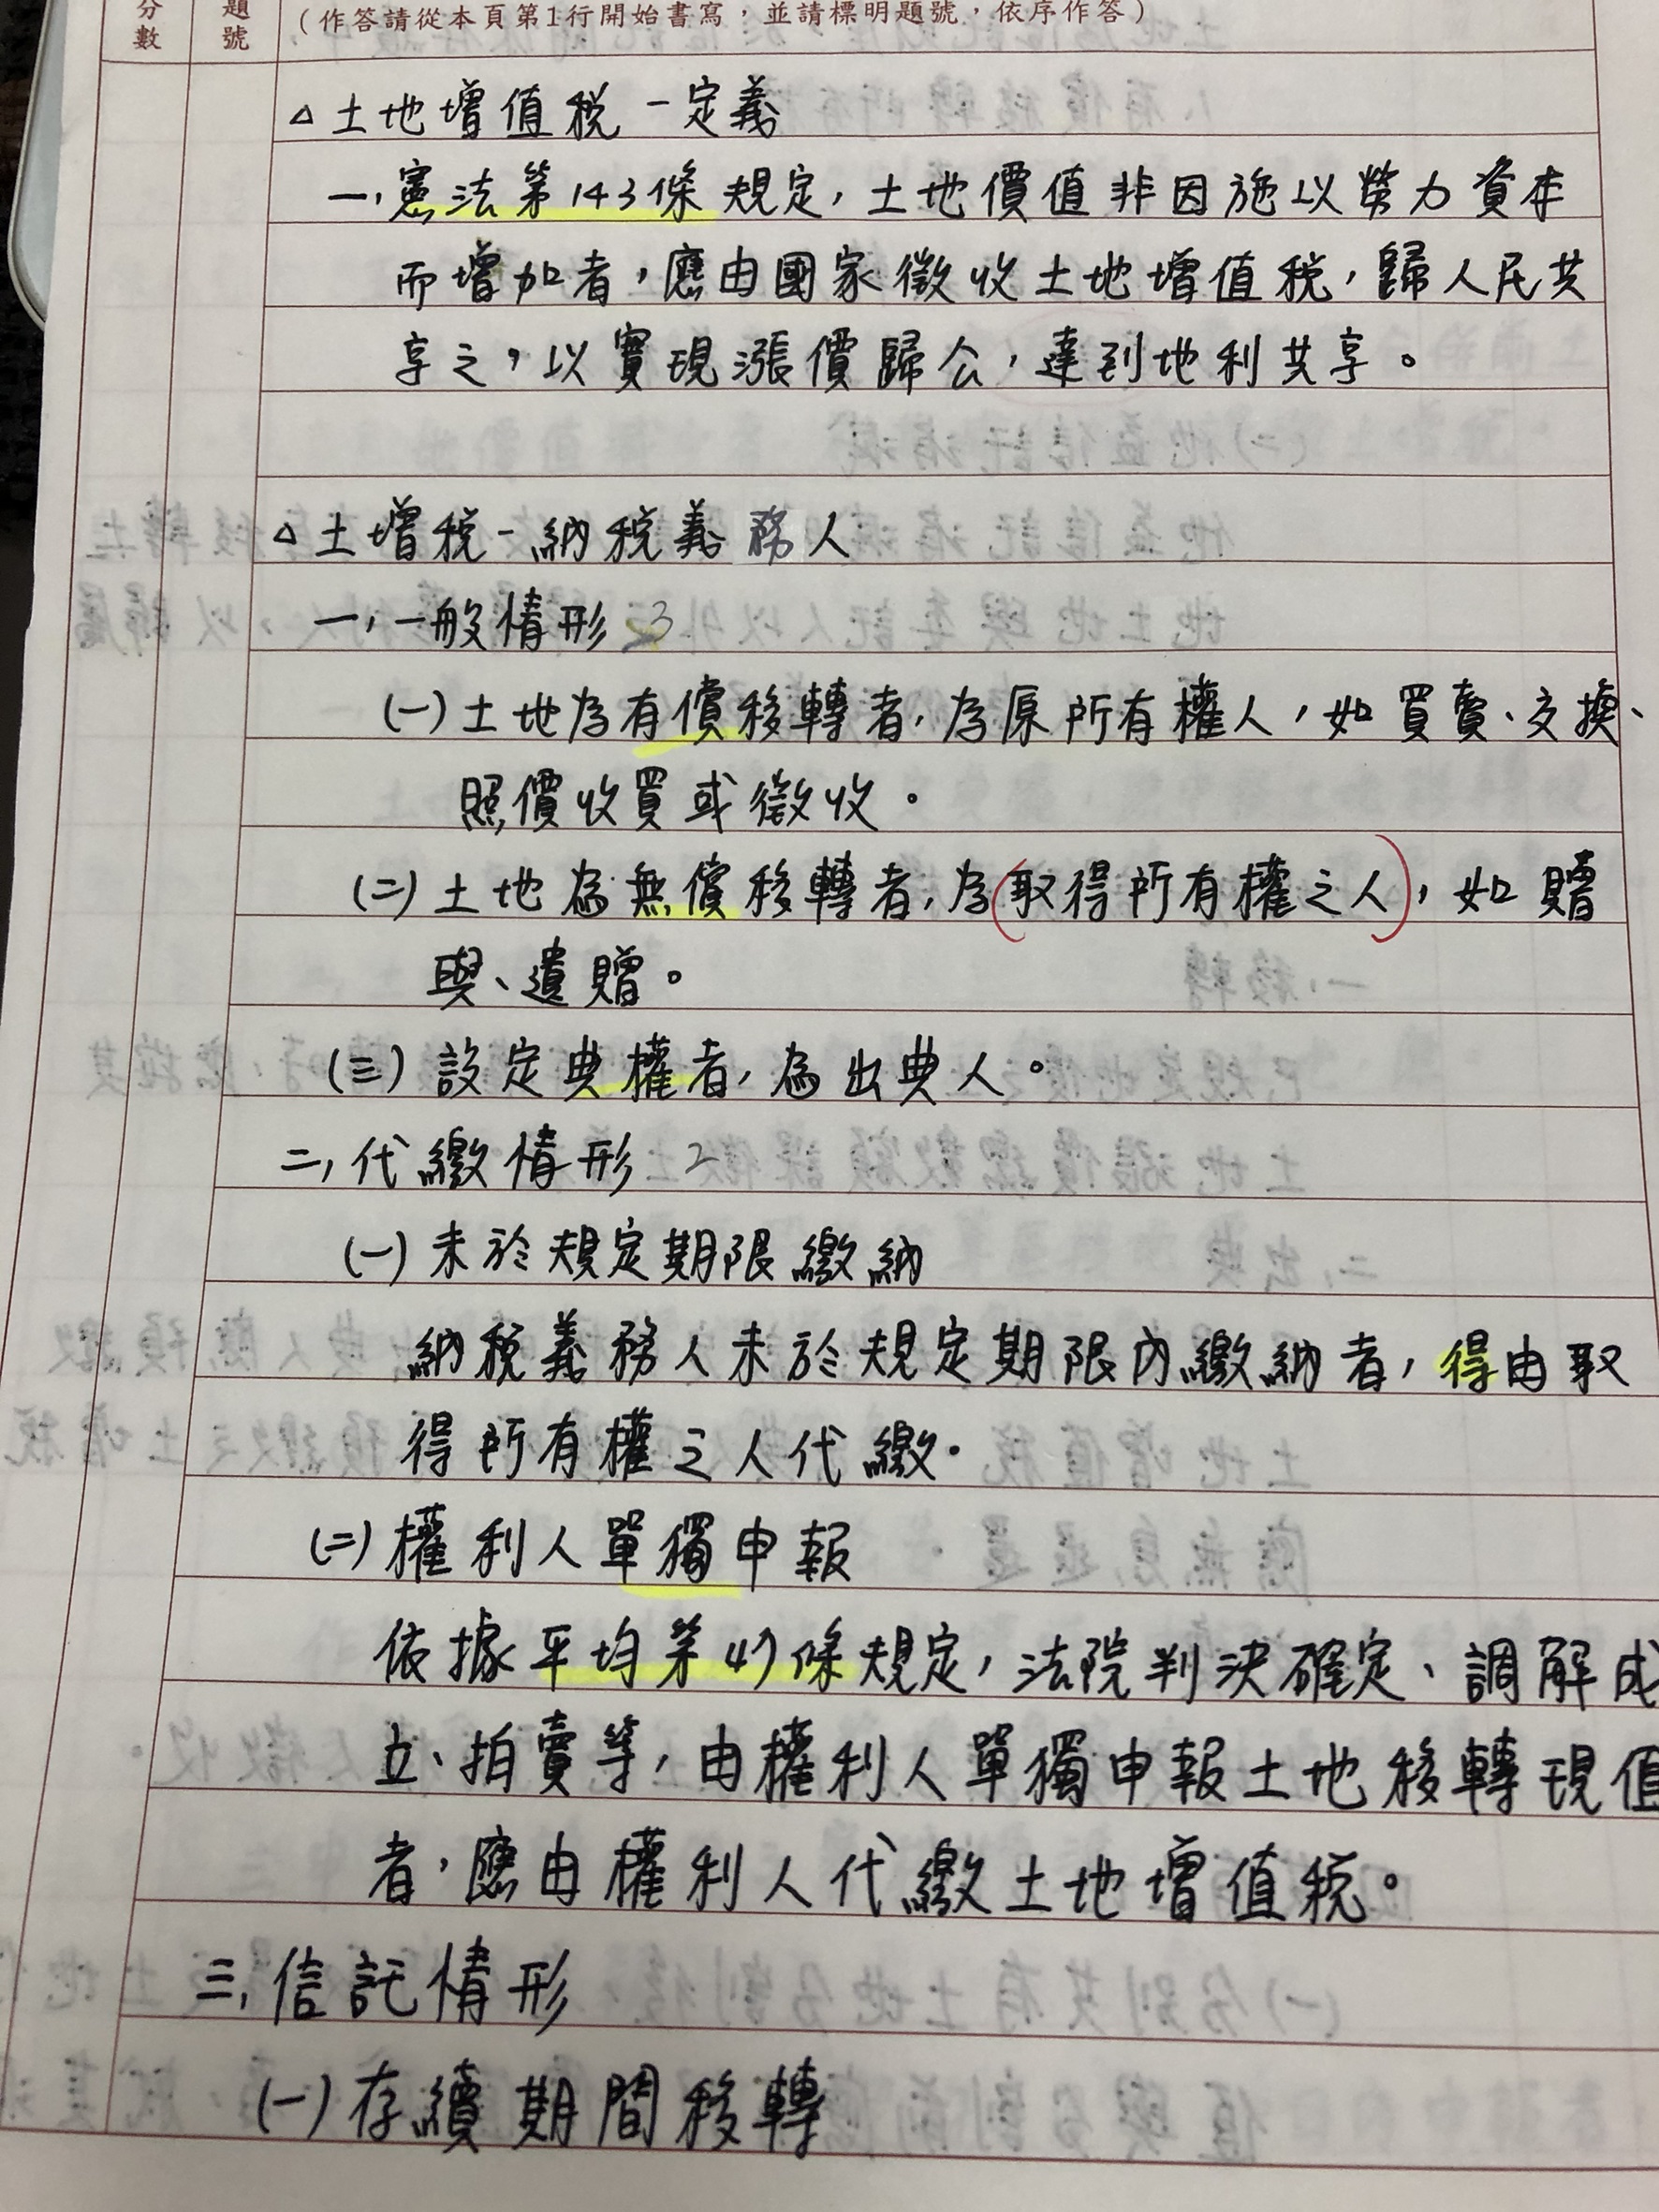 分數
題號
（作答請從本頁第1行開始書寫，並請標明題號，依序作答）
△土地增值稅－定義
一、憲法第143條規定，土地價值非因施以勞力資本
而增加者，應由國家徵收土地增值稅，歸人民共
享之，以實現漲價歸公，達到地利共享。
△土增稅－納稅義務人
一、一般情形 3
(一)土地為有償移轉者，為原所有權人，如買賣、交換、
照價收買或徵收。
(二)土地為無償移轉者，為(取得所有權之人)，如贈
與、遺贈。
(三)設定典權者，為出典人。
二、代繳情形 2
(一)未於規定期限繳納
納稅義務人未於規定期限內繳納者，得由取
得所有權之人代繳。
(二)權利人單獨申報
依據平均第47條規定，法院判決確定、調解成
立、拍賣等，由權利人單獨申報土地移轉現值
者，應由權利人代繳土地增值稅。
三、信託情形
(一)存續期間移轉